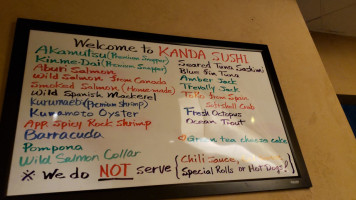 Welcome to KANDA SUSHI
Akamutsu (Premium Snapper)
Kinme-Dai (Premium Snapper)
Aburi Salmon
Wild Salmon from Canada
Smoked Salmon (Home-made)
Wild Spanish Mackerel
Kurumaebi (Premium Shrimp)
Kumamoto Oyster
App. Spicy Rock Shrimp
Barracuda
Pompona
Wild Salmon Collar
Seared Tuna (Sashimi)
Blue Fin Tuna
Amber Jack
Trevally Jack
Toro from Spain
Softshell Crab
Fresh Octopus
Ocean Trout
Green tea cheese cake
※ We do NOT serve
Chili Sauce,
Special Rolls or Hot Dogs!